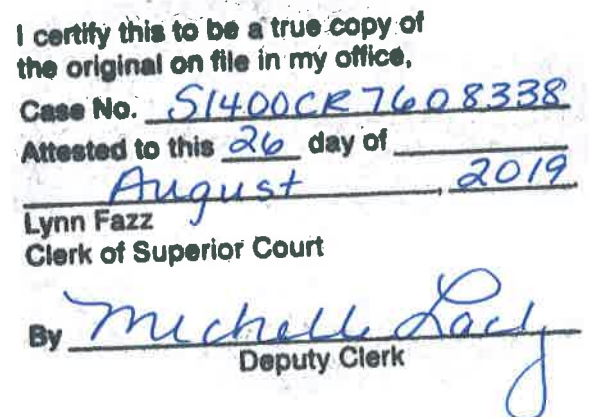 I certify this to be a true copy of
the original on file in my office,
Case No. S1400CR7608338
Attested to this 26 day of
August, 2019
Lynn Fazz
Clerk of Superior Court
By Michelle
Deputy Clerk